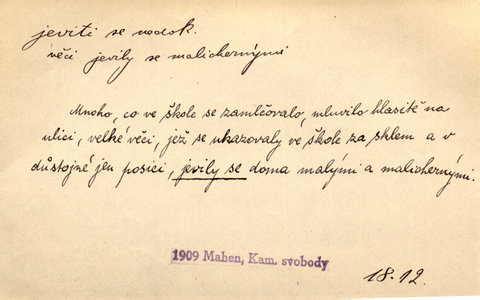 jeviti se vodok.
věci jevily se malichernými
Mnoho, co ve škole se zamlčovalo, mluvilo hlasitě na
ulici, velké věci, jež se ukazovaly ve škole za sklem a v
důstojné jen posici, jevily se doma malými a malichernými.
1909 Mahen, Kam. svobody
18.12.